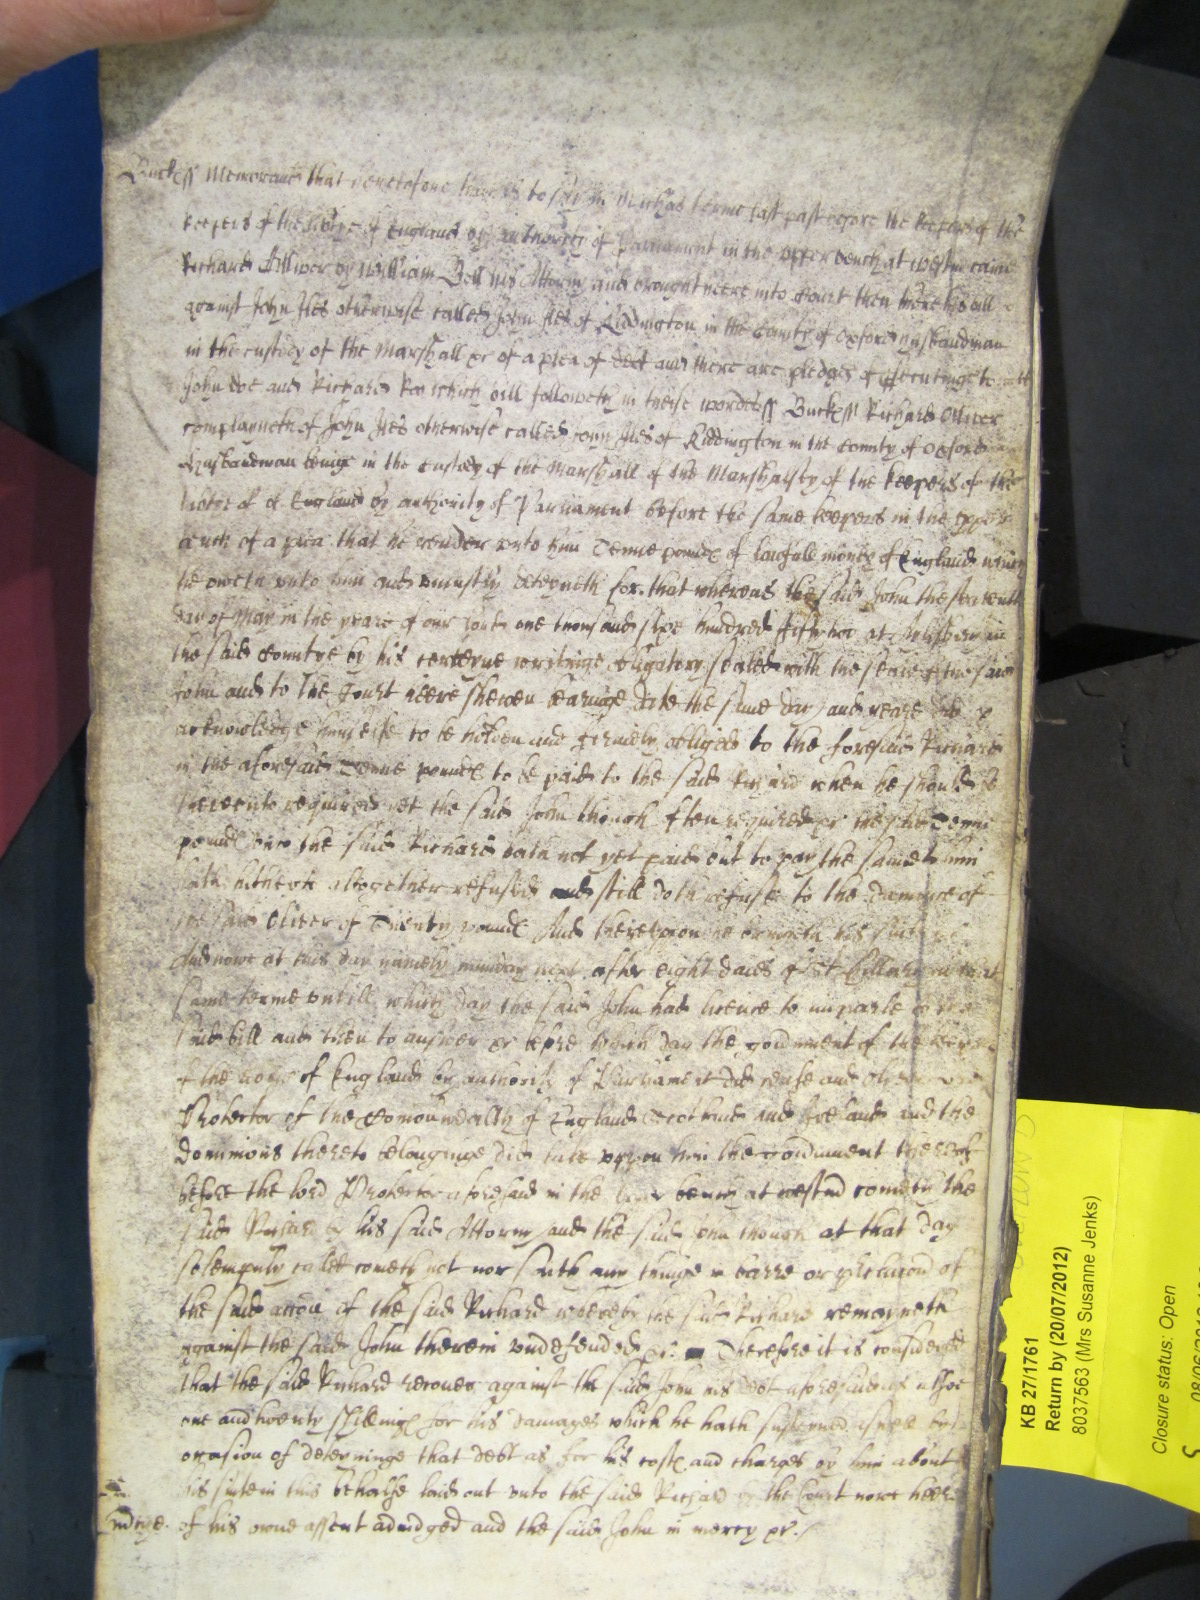 Buckss Memorand that heretofore that is to say in Michas terme last past before the keepers of the
keepers of the libtye of England by authority of Parliament in the upper bench at Westm came
Richard Olliver by William Bell his Attorny and brought heere into Court then there his bill
against John Iles otherwise called John Iles of Kiddington in the County of Oxford husbandman
in the custody of the Marshall &c of a plea of debt and there are pledges of
John Doe and Richard Roe which bill followeth in theise wordes ss Buckss Richard Oliver
complayneth of John Iles otherwise called John Iles of Kiddington in the County of Oxford
husbandman beinge in the custody of the Marshall of the Marshalsey of the keepers of the
libtye of of England by authority of Parliament before the same keepers in the upper
bench of a plea that he render unto him Tenne pounds of lawfull money of England which
he oweth unto him and uniustly deteyneth for that whereas the said John the
day of May in the yeare of our Lord one thousand sixe hundred fifty two at in
the said Countye by his certeyne writinge obligatory sealed with the seale of the said
John and to the Court heere shewen bearinge date the same day and yeare did
acknowledge himselfe to be holden and firmely obliged to the foresaid Richard
in the aforesaid Tenne pounds to be paid to the said Richard when he should be
thereunto required yet the said John though often required &c the said Tenne
pounds unto the said Richard hath not yet paid but to pay the same to him
hath hitherto altogether refused and still doth refuse to the damage of
the said Oliver of Twenty pounds And thereupon he bringeth his suite &c
And nowe at this day namely munday next after eight daies of St Hillary in that
same terme untill which day the said John had licence to imparle to the
said bill and then to answer &c before which day the government of the keepers
of the libtye of England by authority of Parliament did cease and Oliver Lord
Protector of the Comonwealth of England Scotland and Ireland and the
dominions thereto belonginge did take uppon him the government thereof
before the lord Protector aforesaid in the upper bench at westm cometh the
said Richard by his said Attorny and the said John though at that day
solempnly called cometh not nor saith any thinge in barre or preclusion of
the said accon of the said Richard whereby the said Richard remayneth
against the said John therein undefended &c. Therefore it is considered
that the said Richard recover against the said John his debt aforesaid and alsoe
one and twenty shillings for his damages which he hath susteyned aswell by
occasion of deteyninge that debt as for his costs and charges by him about
his suite in this behalfe laid out unto the said Richard by the Court nowe heere
of his owne assent adiudged and the said John in mercy &c./
KB 27/1761
Return by (20/07/2012)
8037563 (Mrs Susanne Jenks)
Closure status: Open